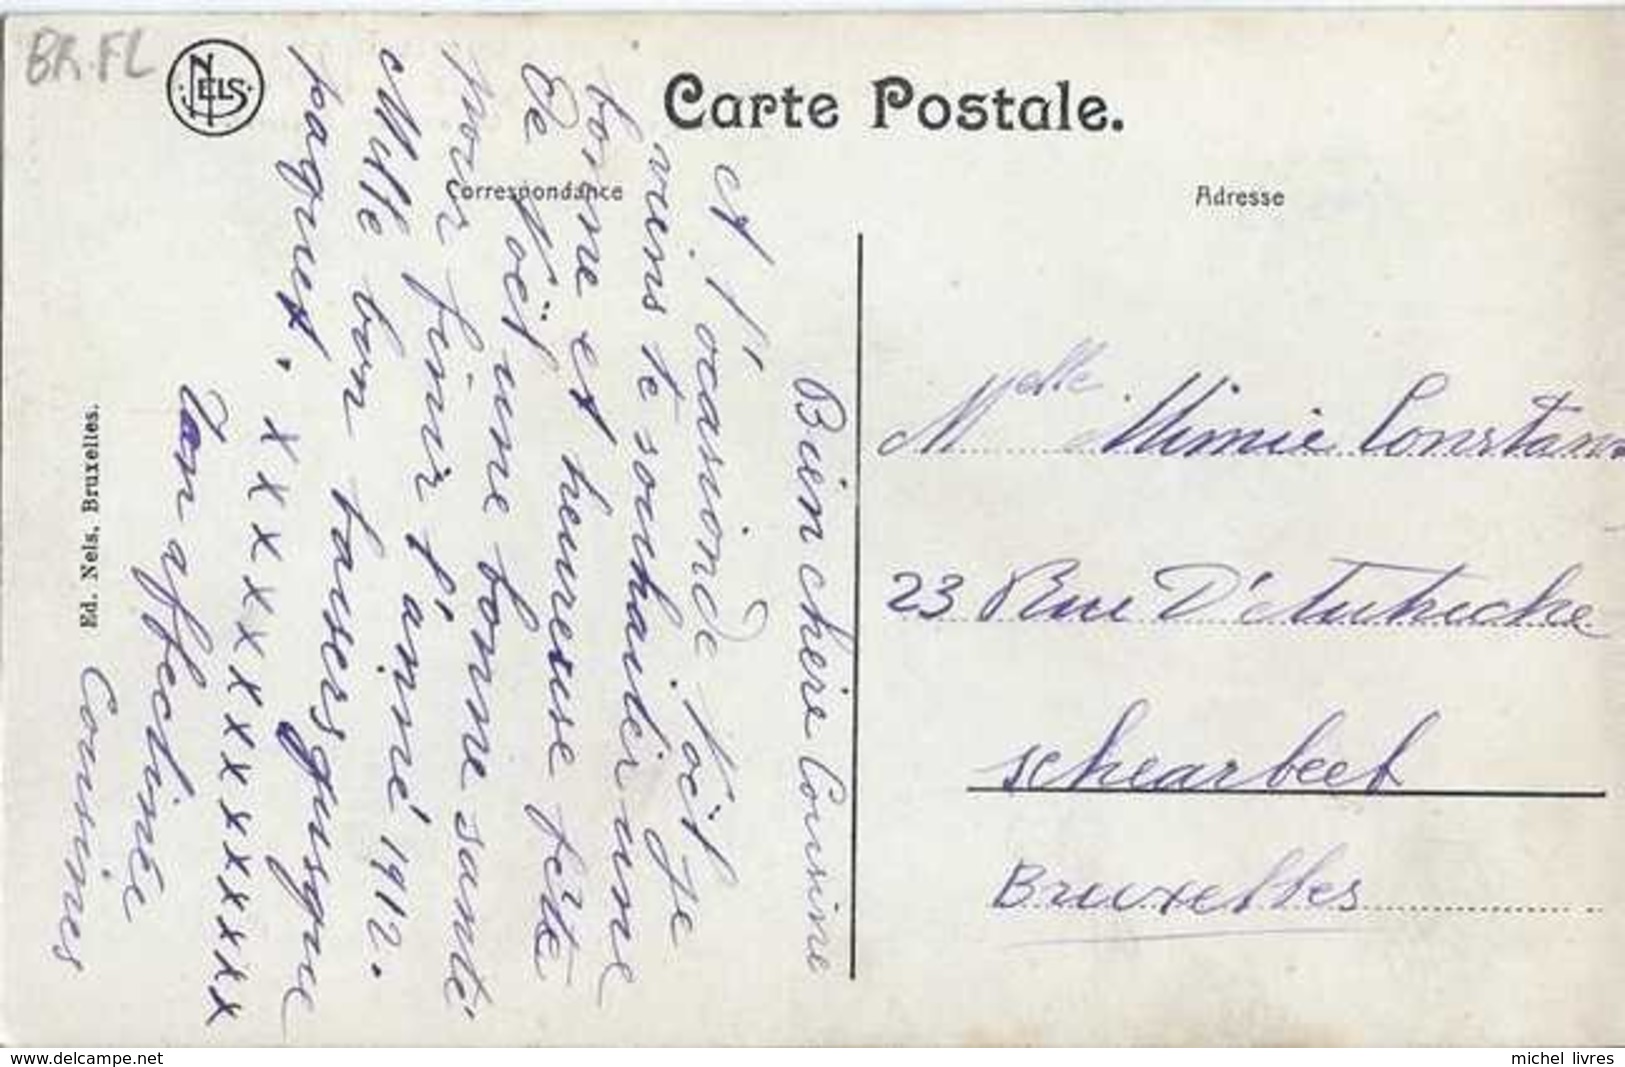 BR.FL
NELS
Carte Postale.
Correspondance
Adresse
Bien chère Cousine
et l'ocasionde Noët je
viens te souhaiter une
bonne et heureuse fête
De Noët
une bonne santé
pour finir l'anné 1912.
Mille bon baisers jusque
paques.
x x x x x x x x x x x x x x
Ton affectinée
Cousines
Melle Mimie Constan
23 Rue D'
schearbeek
Bruxelles
Ed. Nels, Bruxelles.
www.delcampe.net
michel livres